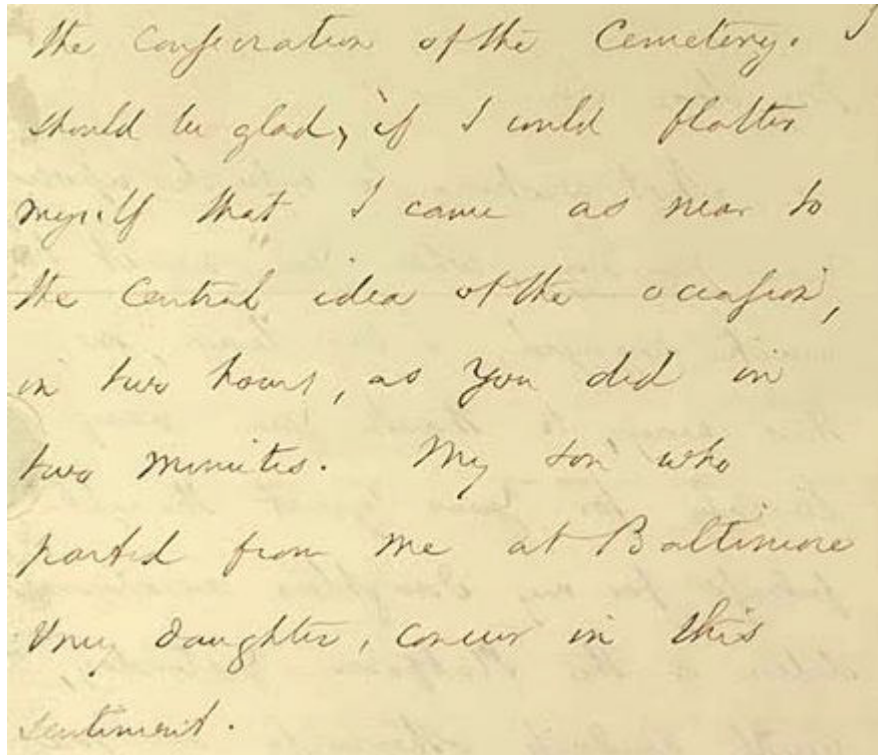 the consecration of the Cemetery. I
should be glad, if I could flatter
myself that I came as near to
the central idea of the occasion,
in two hours, as you did in
two minutes. My son who
parted from me at Baltimore
& my daughter, concur in this
sentiment.